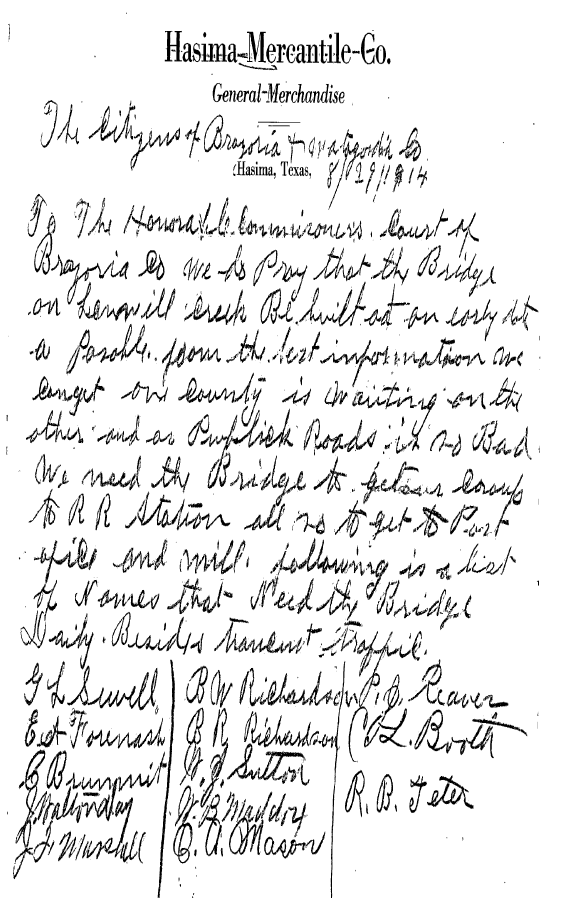 Hasima-Mercantile-Co.
General-Merchandise
The Citizens of Brazoria + Matagorda Co
Hasima, Texas, 8/29/1914
To The Honorable Commissoners. Court of
Brazoria Co We do Pray that the Bridge
on creek Be built at an early date
a Posable. from the best information we
can get one County is waiting on the
other and as Publick Roads is so Bad
We need the Bridge to get our Corops
to R R Station all so to get to Post
ofice and mill. following is a list
of Names that Need the Bridge
Daily. Besides trancent traffic.
G L Sewell B W Richardson P. C. Reaver
E A Fornash B R Richardson C L. Booth
C Brumnit W. J. Sutton R. B. Teter
J Walton Day W. B Maddox
J. F. Marshall C. A. Mason